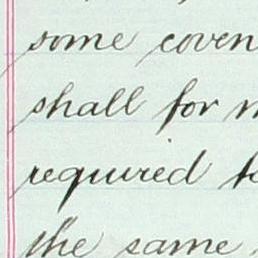 some coven
shall for
required
the same